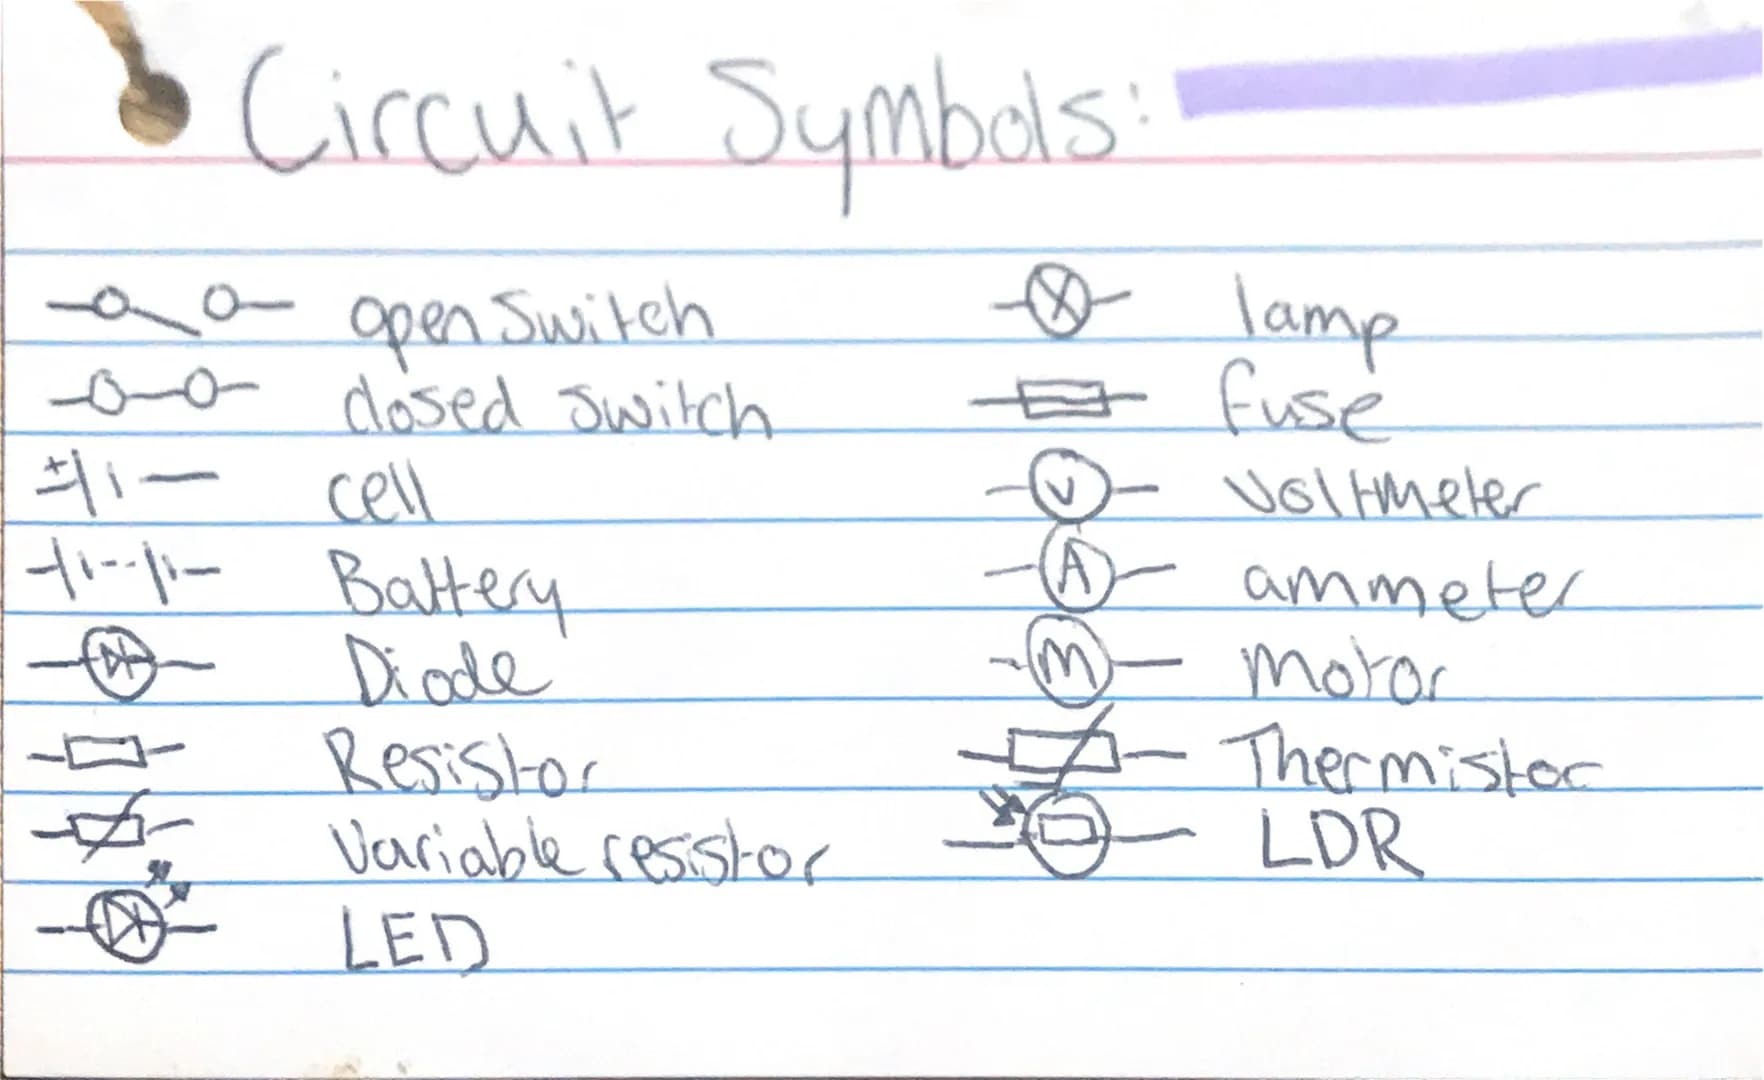 Circuit Symbols:
open Switch
closed switch
+ cell
Battery
Diode
Resistor
Variable resistor
LED
lamp
fuse
V Voltmeter
A ammeter
M Motor
Thermistor
LDR